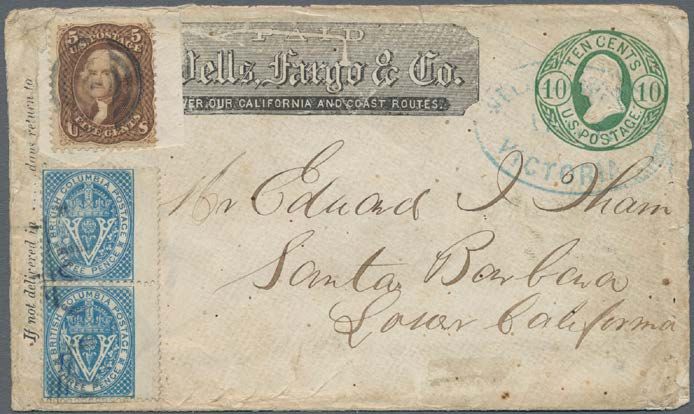 5 5
U.S. POSTAGE
U S
FIVE CENTS
PAID
Wells, Fargo & Co.
OVER OUR CALIFORNIA AND COAST ROUTES.
TEN CENTS
10 10
U.S. POSTAGE
VICTORIA
If not delivered in ...... days return to
BRITISH COLUMBIA POSTAGE
V
THREE PENCE
BRITISH COLUMBIA POSTAGE
V
THREE PENCE
Mr Edward I. Tham
Santa Barbara
Lower California